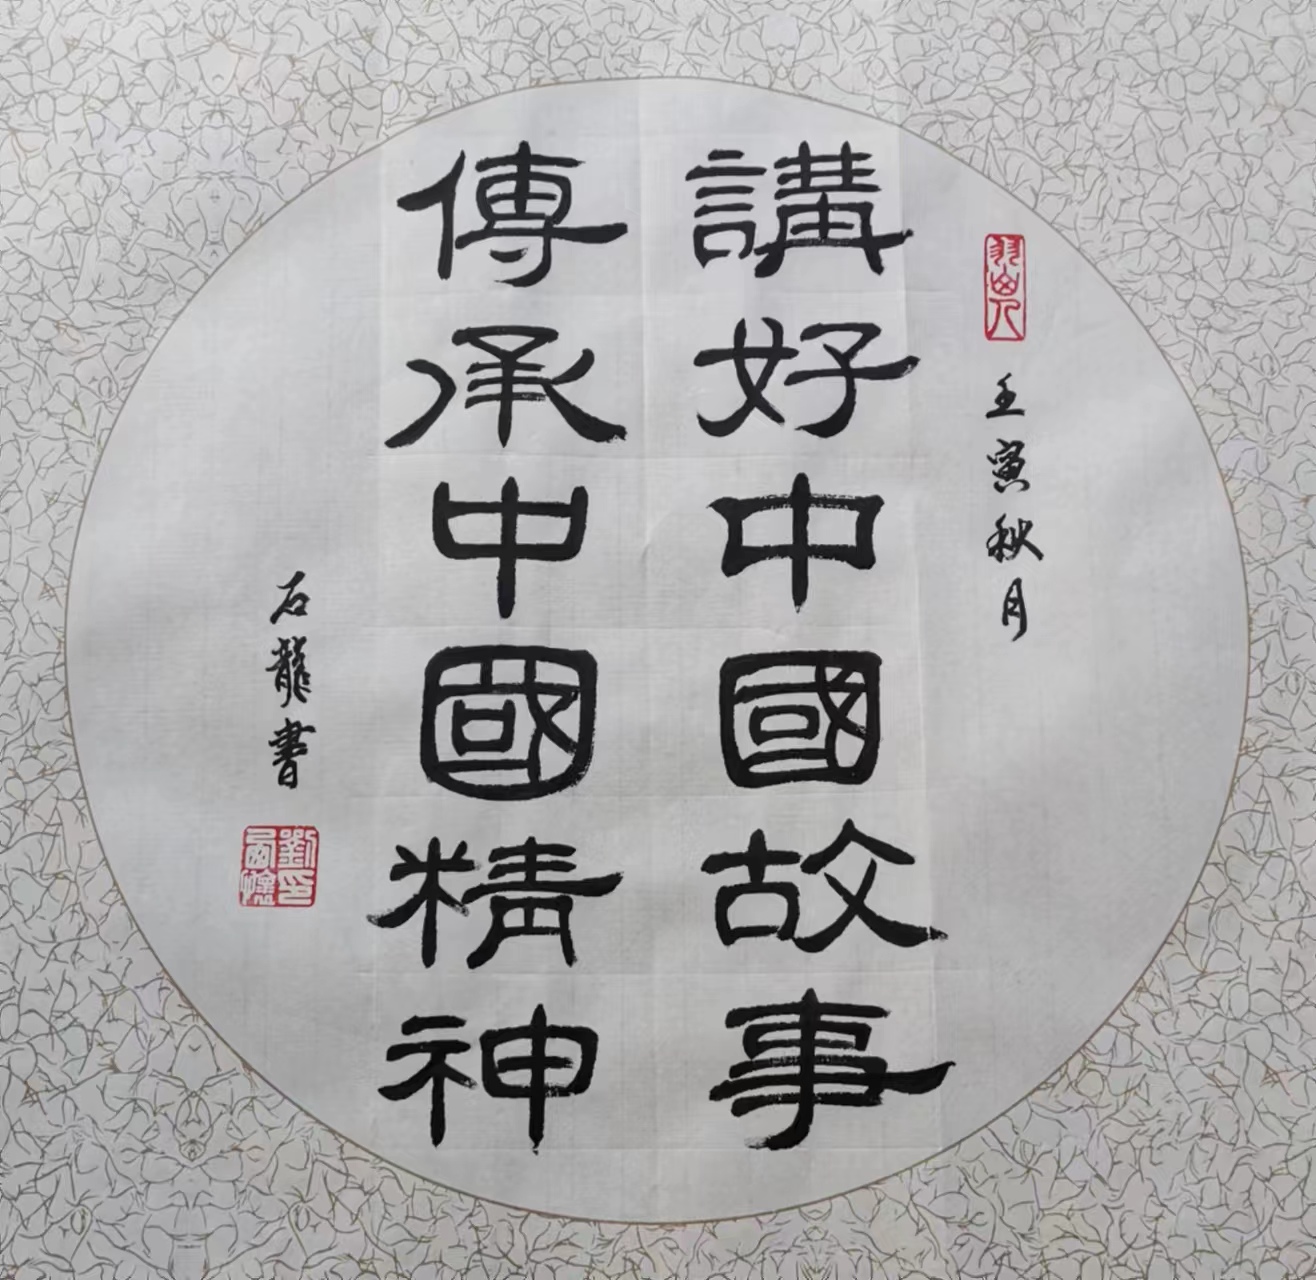 壬寅秋月
講好中國故事
傳承中國精神
石龍書